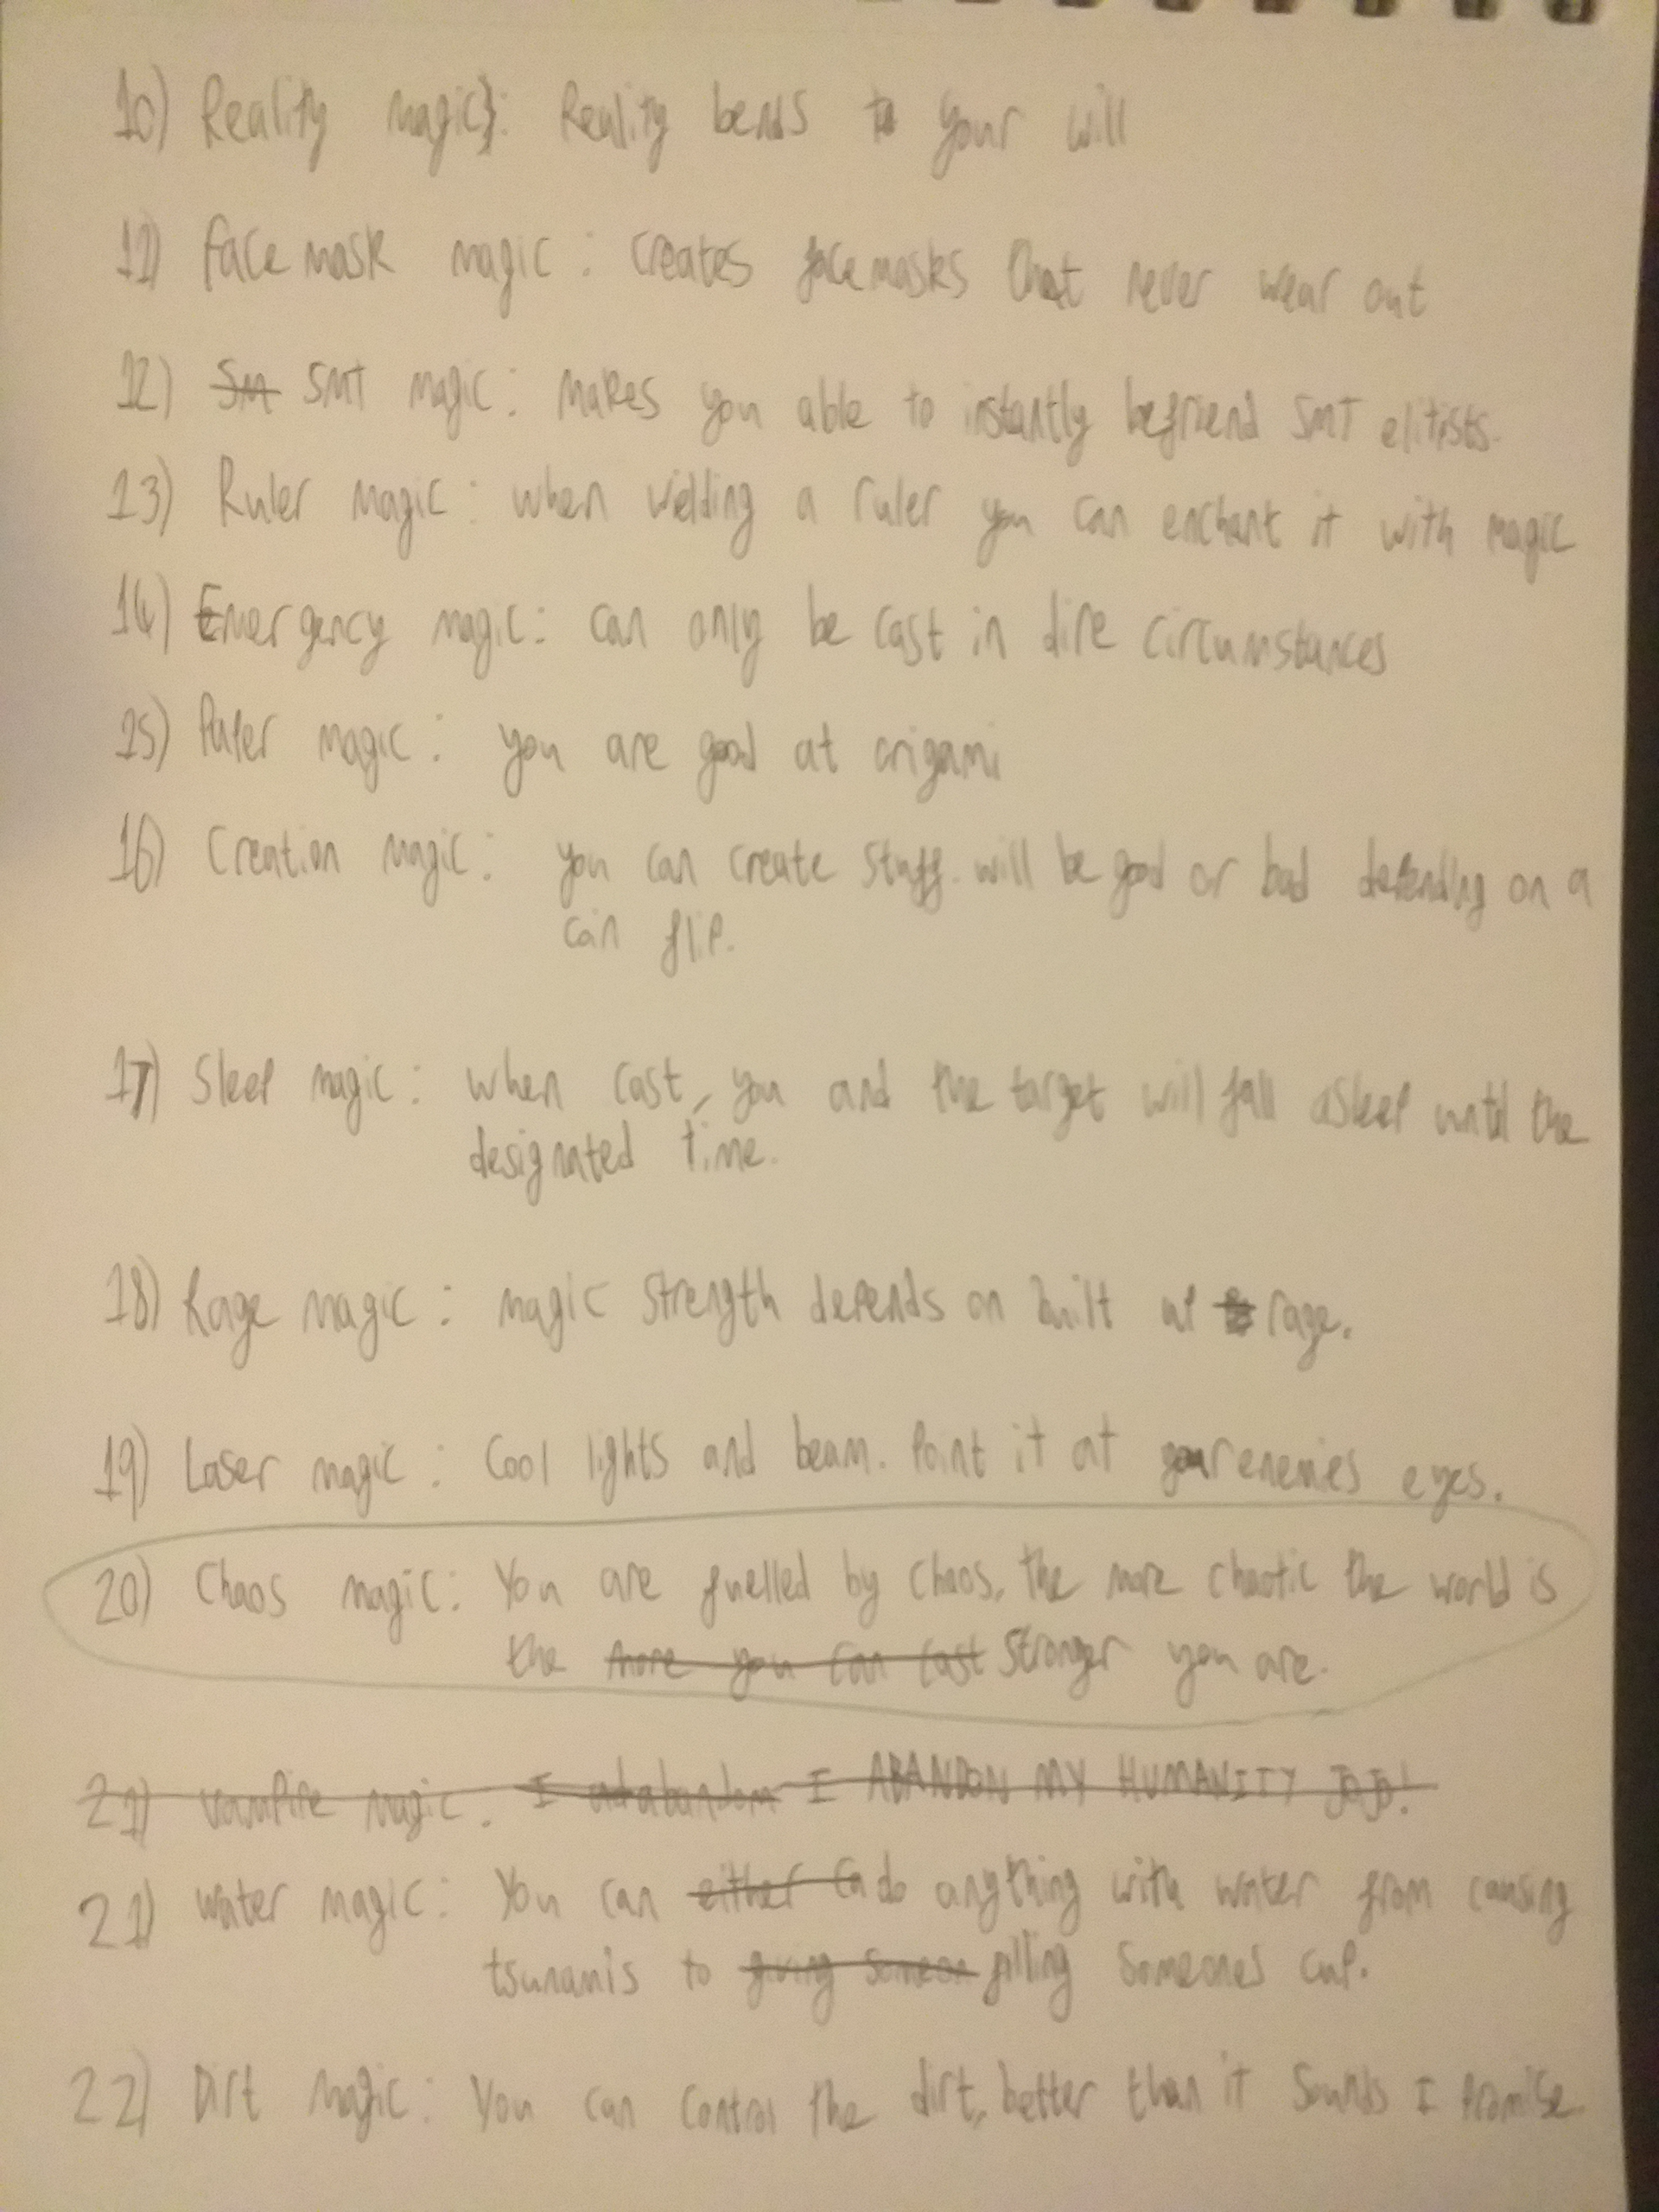 10) Reality magic: Reality bends to your will
11) face mask magic: creates facemasks that never wear out
12) SM SMT magic: Makes you able to instantly befriend SMT elitists.
13) Ruler magic: when wielding a ruler you can enchant it with magic
14) Emergency magic: can only be cast in dire circumstances
15) Paper magic: you are good at origami
16) Creation magic: you can create stuff. will be good or bad depending on a
coin flip.
17) Sleep magic: when cast, you and the target will fall asleep until the
designated time.
18) Rage magic: magic strength depends on built up rage.
19) Laser magic: Cool lights and beam. Point it at your enemies eyes.
20) Chaos magic: You are fuelled by chaos, the more chaotic the world is
the more you can cast stronger you are.
21) vampire magic: I abandom I ABANDON MY HUMANITY JOJO!
21) water magic: You can either ca do anything with water from causing
tsunamis to giving someon filling someones cup.
22) Dirt magic: You can control the dirt, better than it sounds I promise